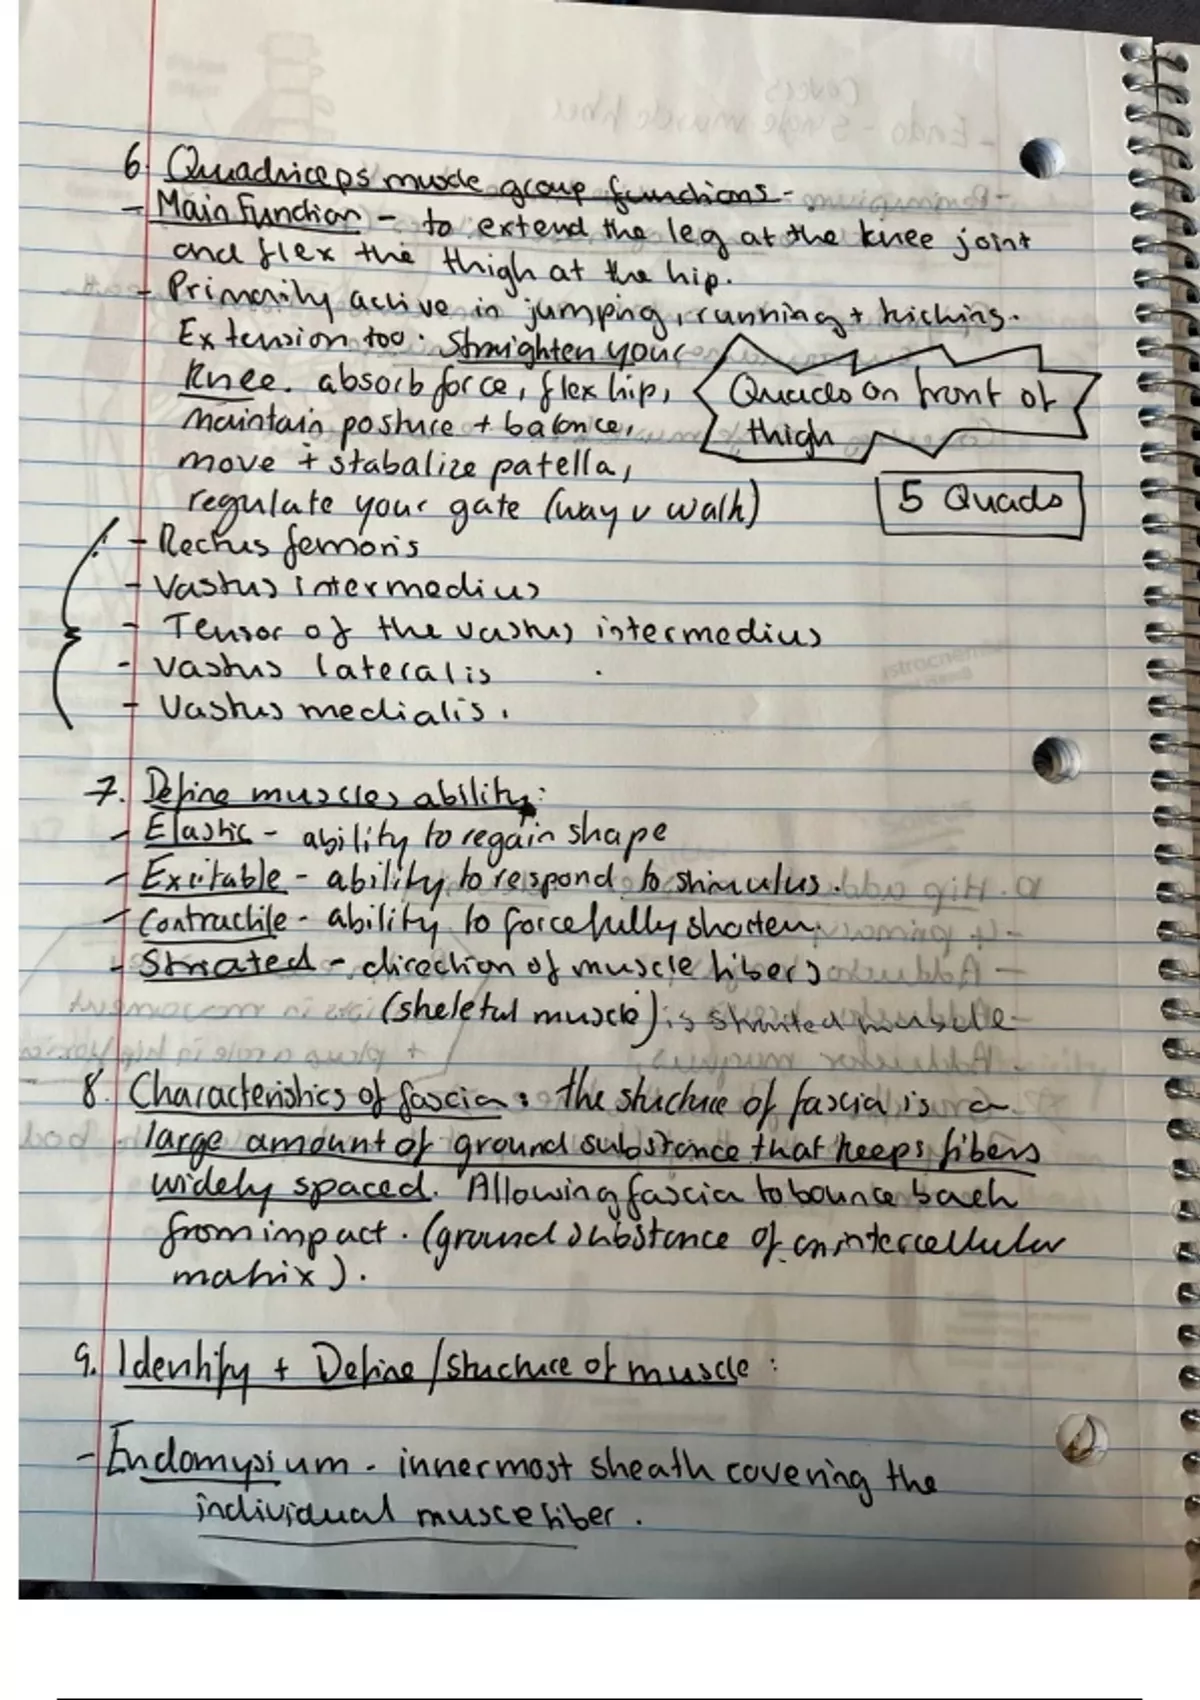 6. Quadriceps muscle group functions -
- Main Function - to extend the leg at the knee joint
and flex the thigh at the hip.
- Primarily active in jumping, running + kicking.
Extension too. Straighten your
knee. absorb force, flex hip,
maintain posture + balance,
move + stabalize patella,
regulate your gate (way u walk)
Quads on front of
thigh
5 Quads
- Rectus femoris
- Vastus intermedius
- Tensor of the vastus intermedius
- Vastus lateralis
- Vastus medialis.
7. Define muscles ability:
- Elastic - ability to regain shape
- Excitable - ability to respond to stimulus.
- Contractile - ability to forcefully shorten.
- Striated - direction of muscle fibers
(skeletal muscle) is striated muscle
8. Characteristics of fascia: the structure of fascia is a
large amount of ground substance that keeps fibers
widely spaced. Allowing fascia to bounce back
from impact. (ground substance of an intercellular
matrix).
9. Identify + Define/structure of muscle:
- Endomysium - innermost sheath covering the
individual musce fiber.